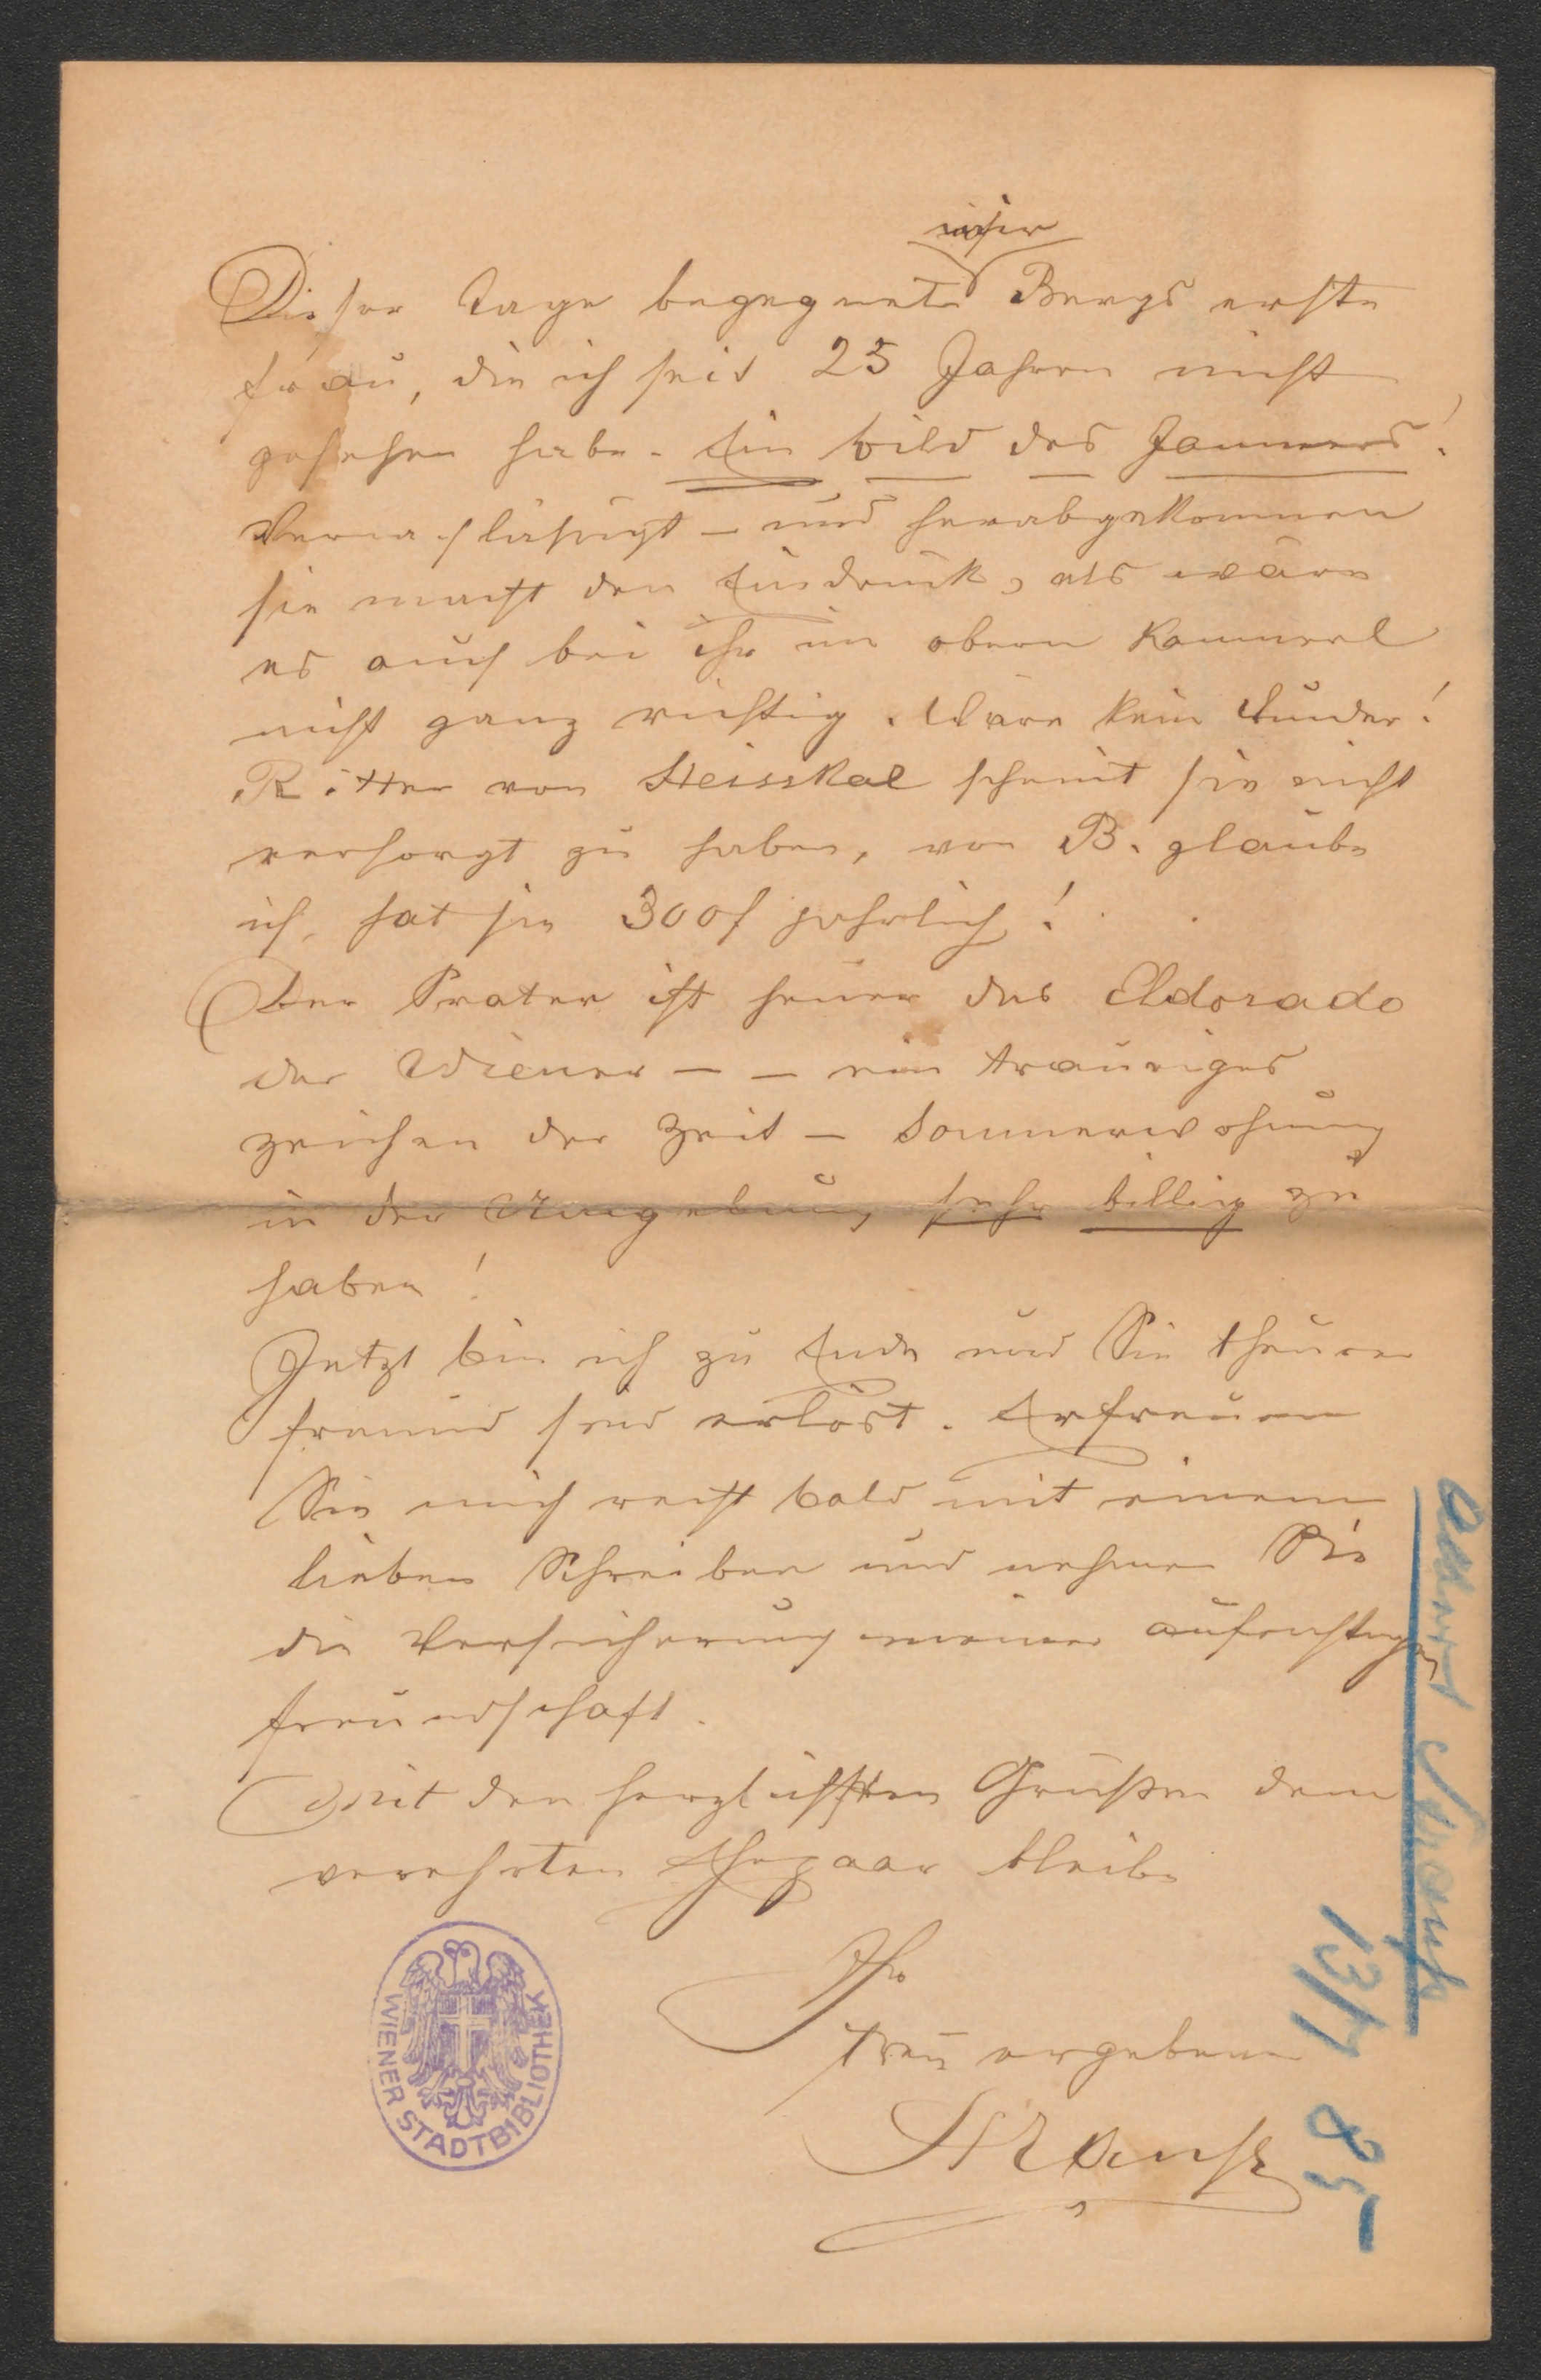 mir
Dieser Tage begegnete Bergs erste
Frau, die ich seit 25 Jahren nicht
gesehen habe. Ein Bild des Jammers!
Vernachläsigt – und herabgekommen
sie macht den Eindruck, als wäre
es auch bei ihr im obern Kammerl
nicht ganz richtig. Wäre kein Wunder!
Ritter von Steisskal scheint sie nicht
versorgt zu haben, von B. glaube
ich, hat sie 300f jahrlich!
Der Prater ist heuer das Eldorado
der Wiener – – ein trauriges
Zeichen der Zeit – Sommerwohnung
in der Umgebung sehr billig zu
haben!
Jetzt bin ich zu Ende und Sie theurer
Freund sind erlöst. Erfreuen
Sie mich recht bald mit einem
lieben Schreiben und nehmen Sie
die Versicherung meiner aufrichtigen
Freundschaft.
Mit den herzlichsten Grüßen dem
verehrten Ehepaar bleibe
Ihr
treu ergebener
Strauß
WIENER STADTBIBLIOTHEK
Strauß
13/4 85